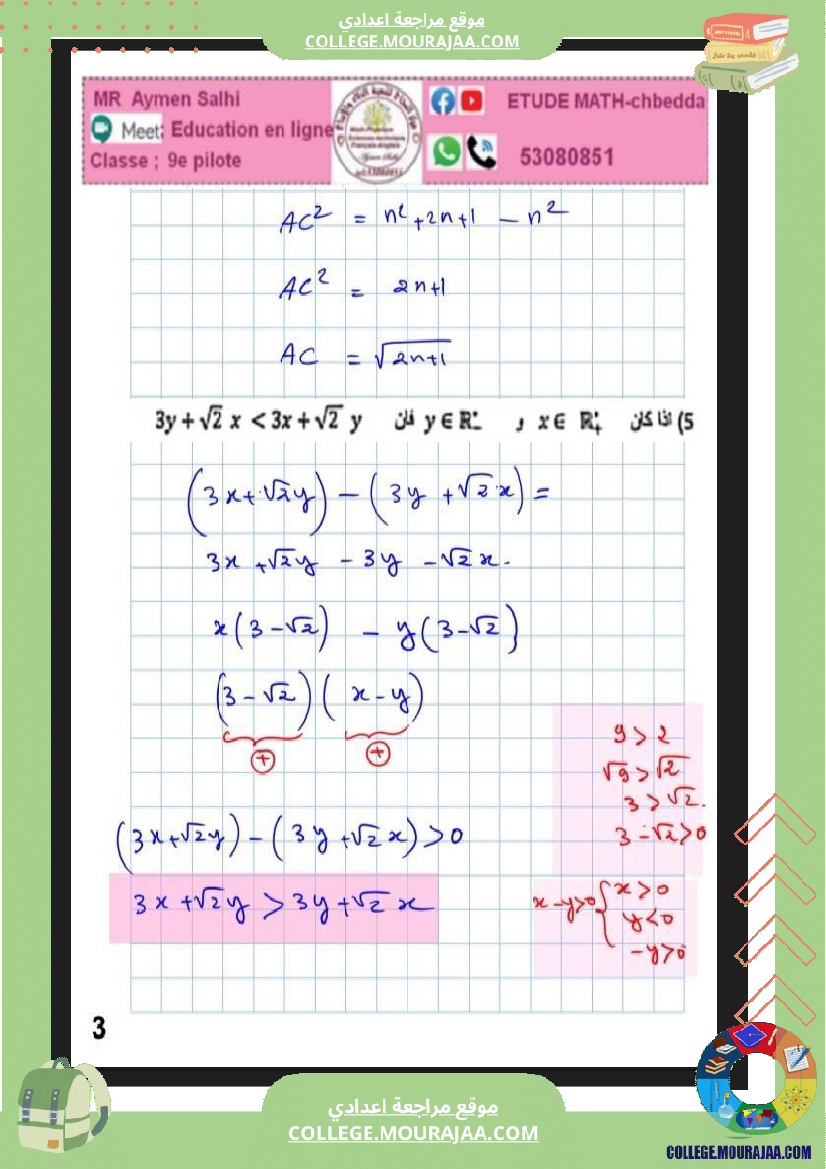 موقع مراجعة اعدادي
COLLEGE.MOURAJAA.COM
MR Aymen Salhi
Meet: Education en ligne
Classe ; 9e pilote
ETUDE MATH-chbedda
53080851
AC² = n²+2n+1 - n²
AC² = 2n+1
AC = √(2n+1)
5) اذا كان x ∈ ℝ₊* و y ∈ ℝ₋* فان 3y + √2 x < 3x + √2 y
(3x+√2y) - (3y+√2x) =
3x+√2y - 3y - √2x.
x(3-√2) - y(3-√2)
(3-√2)(x-y)
+ +
9>2
√9>√2
3>√2.
3-√2>0
(3x+√2y) - (3y+√2x) >0
3x+√2y > 3y+√2x
x-y>0 { x>0
y<0
-y>0
3
موقع مراجعة اعدادي
COLLEGE.MOURAJAA.COM
COLLEGE.MOURAJAA.COM